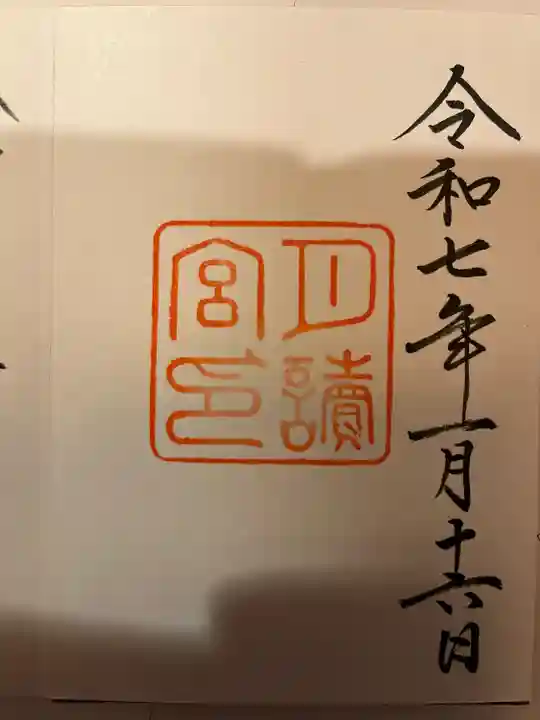 令和七年一月十六日
月讀
宮印